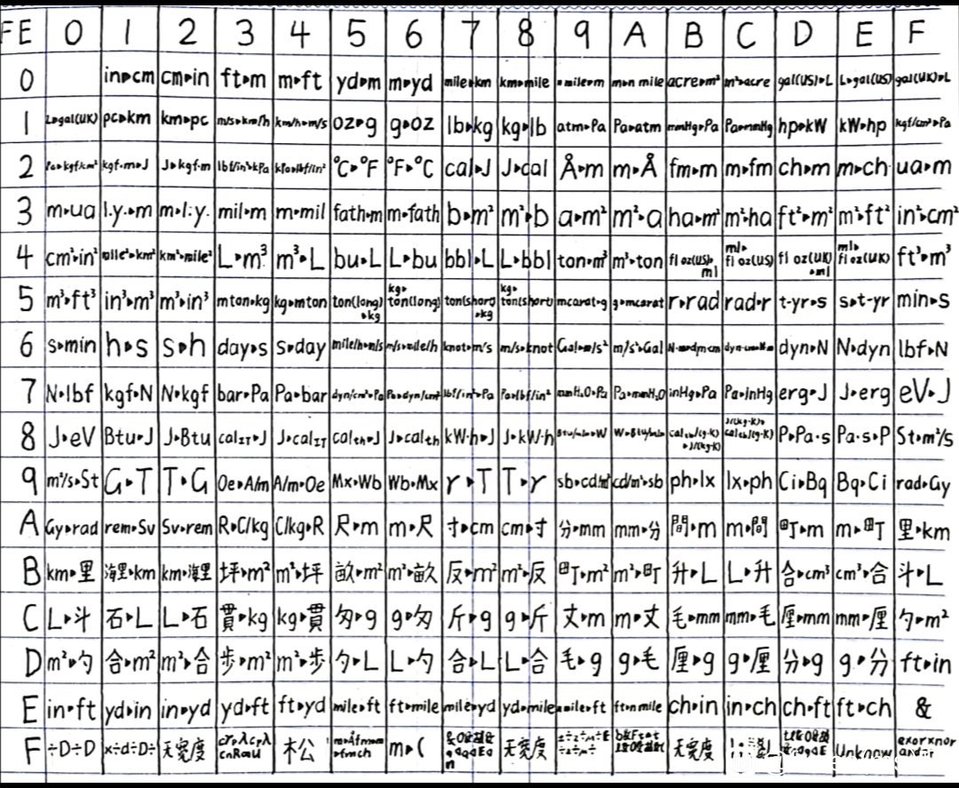 FE 0 1 2 3 4 5 6 7 8 9 A B C D E F
0 in▸cm cm▸in ft▸m m▸ft yd▸m m▸yd mile▸km km▸mile n mile▸m m▸n mile acre▸m² m²▸acre gal(US)▸L L▸gal(US) gal(UK)▸L
1 L▸gal(UK) pc▸km km▸pc m/s▸km/h km/h▸m/s oz▸g g▸oz lb▸kg kg▸lb atm▸Pa Pa▸atm mmHg▸Pa Pa▸mmHg hp▸kW kW▸hp kgf/cm²▸Pa
2 Pa▸kgf/cm² kgf·m▸J J▸kgf·m lbf/in²▸kPa kPa▸lbf/in² °C▸°F °F▸°C cal▸J J▸cal Å▸m m▸Å fm▸m m▸fm ch▸m m▸ch ua▸m
3 m▸ua l.y.▸m m▸l.y. mil▸m m▸mil fath▸m m▸fath b▸m² m²▸b a▸m² m²▸a ha▸m² m²▸ha ft²▸m² m²▸ft² in²▸cm²
4 cm²▸in² mile²▸km² km²▸mile² L▸m³ m³▸L bu▸L L▸bu bbl▸L L▸bbl ton▸m³ m³▸ton fl oz(US)▸ml ml▸fl oz(US) fl oz(UK)▸ml ml▸fl oz(UK) ft³▸m³
5 m³▸ft³ in³▸m³ m³▸in³ mton▸kg kg▸mton ton(long)▸kg kg▸ton(long) ton(short)▸kg kg▸ton(short) mcarat▸g g▸mcarat r▸rad rad▸r t-yr▸s s▸t-yr min▸s
6 s▸min h▸s s▸h day▸s s▸day mile/h▸m/s m/s▸mile/h knot▸m/s m/s▸knot Gal▸m/s² m/s²▸Gal N·m▸dyn·cm dyn·cm▸N·m dyn▸N N▸dyn lbf▸N
7 N▸lbf kgf▸N N▸kgf bar▸Pa Pa▸bar dyn/cm²▸Pa Pa▸dyn/cm² lbf/in²▸Pa Pa▸lbf/in² mmH₂O▸Pa Pa▸mmH₂O inHg▸Pa Pa▸inHg erg▸J J▸erg eV▸J
8 J▸eV Btu▸J J▸Btu calIT▸J J▸calIT calth▸J J▸calth kW·h▸J J▸kW·h Btu/min▸W W▸Btu/min calth/(g·K)▸J/(kg·K) J/(kg·K)▸calth/(g·K) P▸Pa·s Pa·s▸P St▸m²/s
9 m²/s▸St G▸T T▸G Oe▸A/m A/m▸Oe Mx▸Wb Wb▸Mx r▸T T▸r sb▸cd/m² cd/m²▸sb ph▸lx lx▸ph Ci▸Bq Bq▸Ci rad▸Gy
A Gy▸rad rem▸Sv Sv▸rem R▸C/kg C/kg▸R 尺▸m m▸尺 寸▸cm cm▸寸 分▸mm mm▸分 間▸m m▸間 町▸m m▸町 里▸km
B km▸里 海里▸km km▸海里 坪▸m² m²▸坪 畝▸m² m²▸畝 反▸m² m²▸反 町▸m² m²▸町 升▸L L▸升 合▸cm³ cm³▸合 斗▸L
C L▸斗 石▸L L▸石 貫▸kg kg▸貫 匁▸g g▸匁 斤▸g g▸斤 丈▸m m▸丈 毛▸mm mm▸毛 厘▸mm mm▸厘 勺▸m²
D m²▸勺 合▸m² m²▸合 歩▸m² m²▸歩 勺▸L L▸勺 合▸L L▸合 毛▸g g▸毛 厘▸g g▸厘 分▸g g▸分 ft▸in
E in▸ft yd▸in in▸yd yd▸ft ft▸yd mile▸ft ft▸mile mile▸yd yd▸mile n mile▸ft ft▸n mile ch▸in in▸ch ch▸ft ft▸ch &
F ÷D÷D x÷d÷D÷ 无宽度 木公 m▸( 无宽度 无宽度 Unknow exorxnorandor